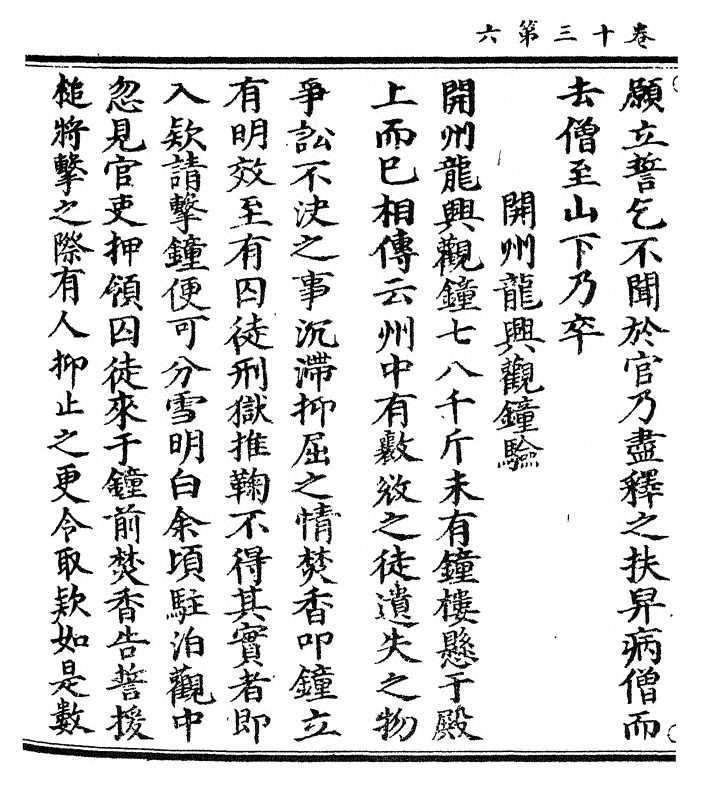 卷十三第六
願立誓乞不聞於官乃盡釋之扶舁病僧而
去僧至山下乃卒
開州龍興觀鐘驗
開州龍興觀鐘七八千斤未有鐘樓懸于殿
上而已相傳云州中有歎欻之徒遺失之物
爭訟不決之事沉滯抑屈之情焚香叩鐘立
有明效至有囚徒刑獄推鞠不得其實者即
入款請擊鐘便可分雪明白余頃駐泊觀中
忽見官吏押領囚徒來于鐘前焚香告誓援
槌將擊之際有人抑止之更令取款如是數